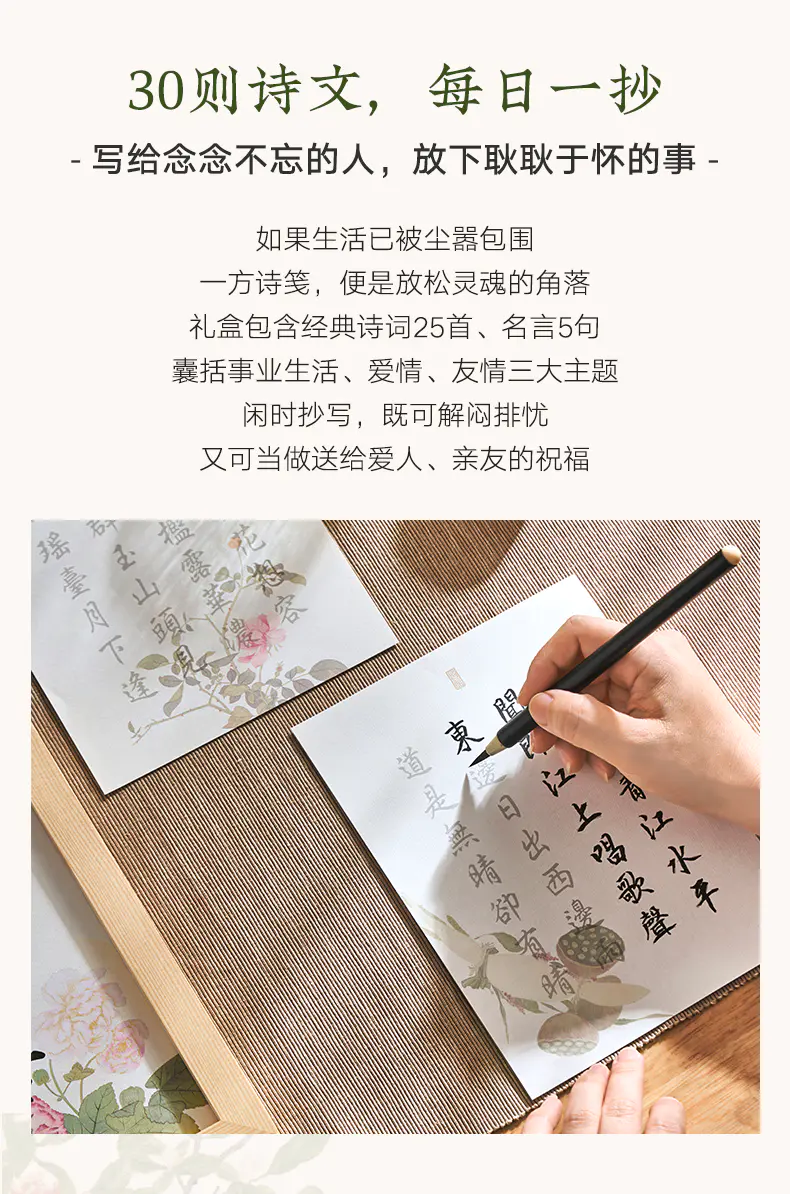 30则诗文，每日一抄
- 写给念念不忘的人，放下耿耿于怀的事 -
如果生活已被尘嚣包围
一方诗笺，便是放松灵魂的角落
礼盒包含经典诗词25首、名言5句
囊括事业生活、爱情、友情三大主题
闲时抄写，既可解闷排忧
又可当做送给爱人、亲友的祝福
花想容
檻露華濃
群玉山頭見
瑶臺月下逢
青江水平
聞郎江上唱歌聲
東邊日出西邊雨
道是無晴卻有晴